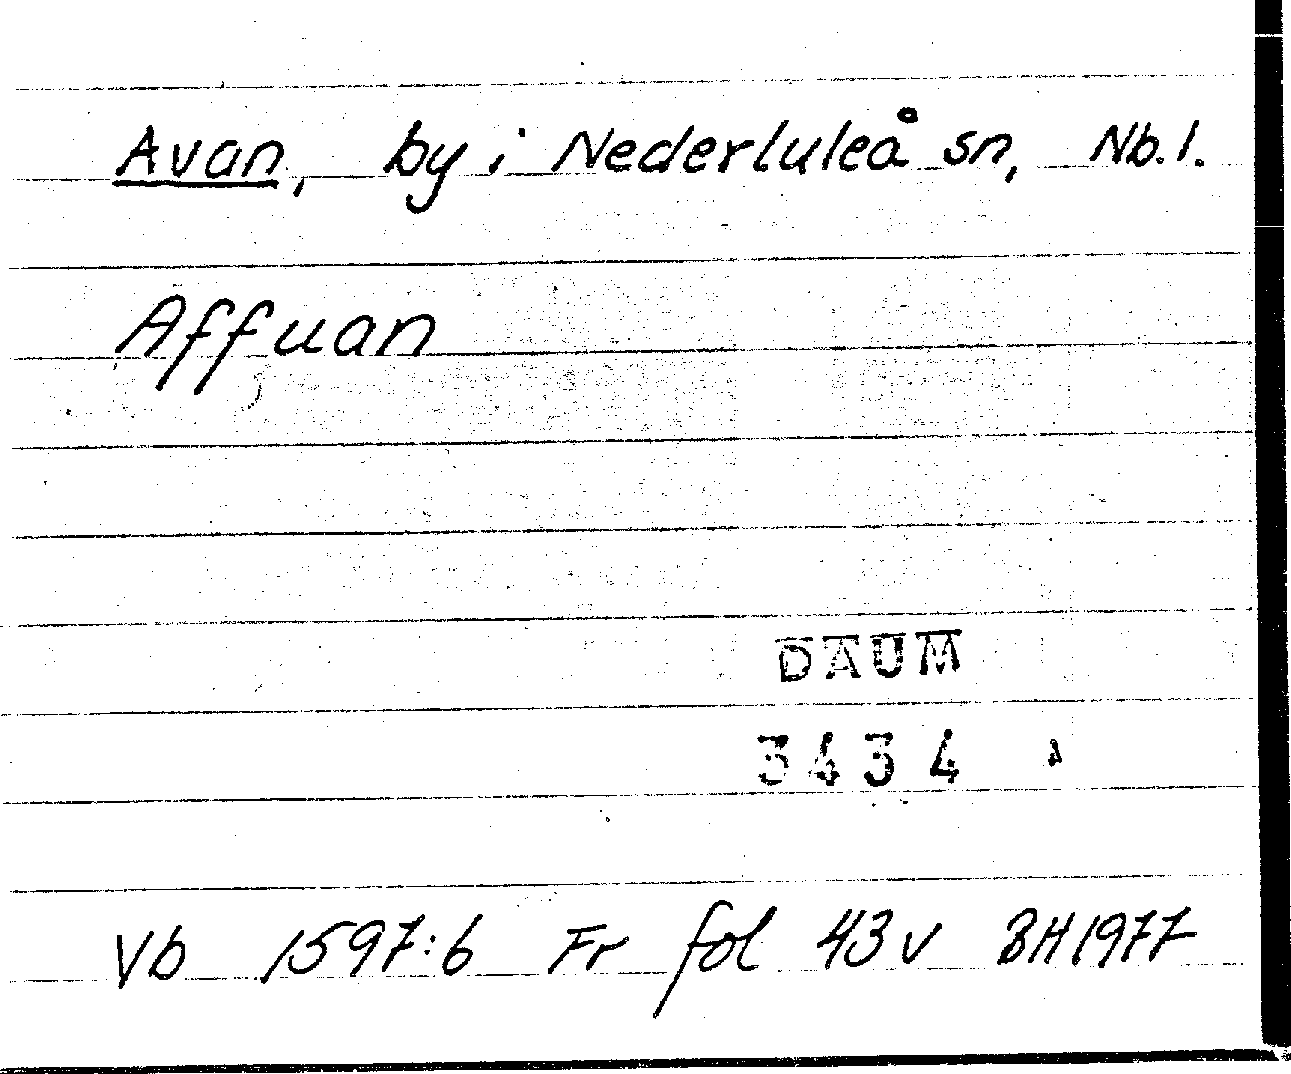 Avan, by i Nederluleå sn, Nb. l.
Affuan
DAUM
3434
Vb 1597:6 Fr fol 43 v BH 1977